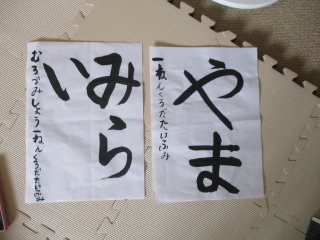 やま
一ねんくろだたいふみ
みら
い
むろづみしょう一ねんくろだたいふみ